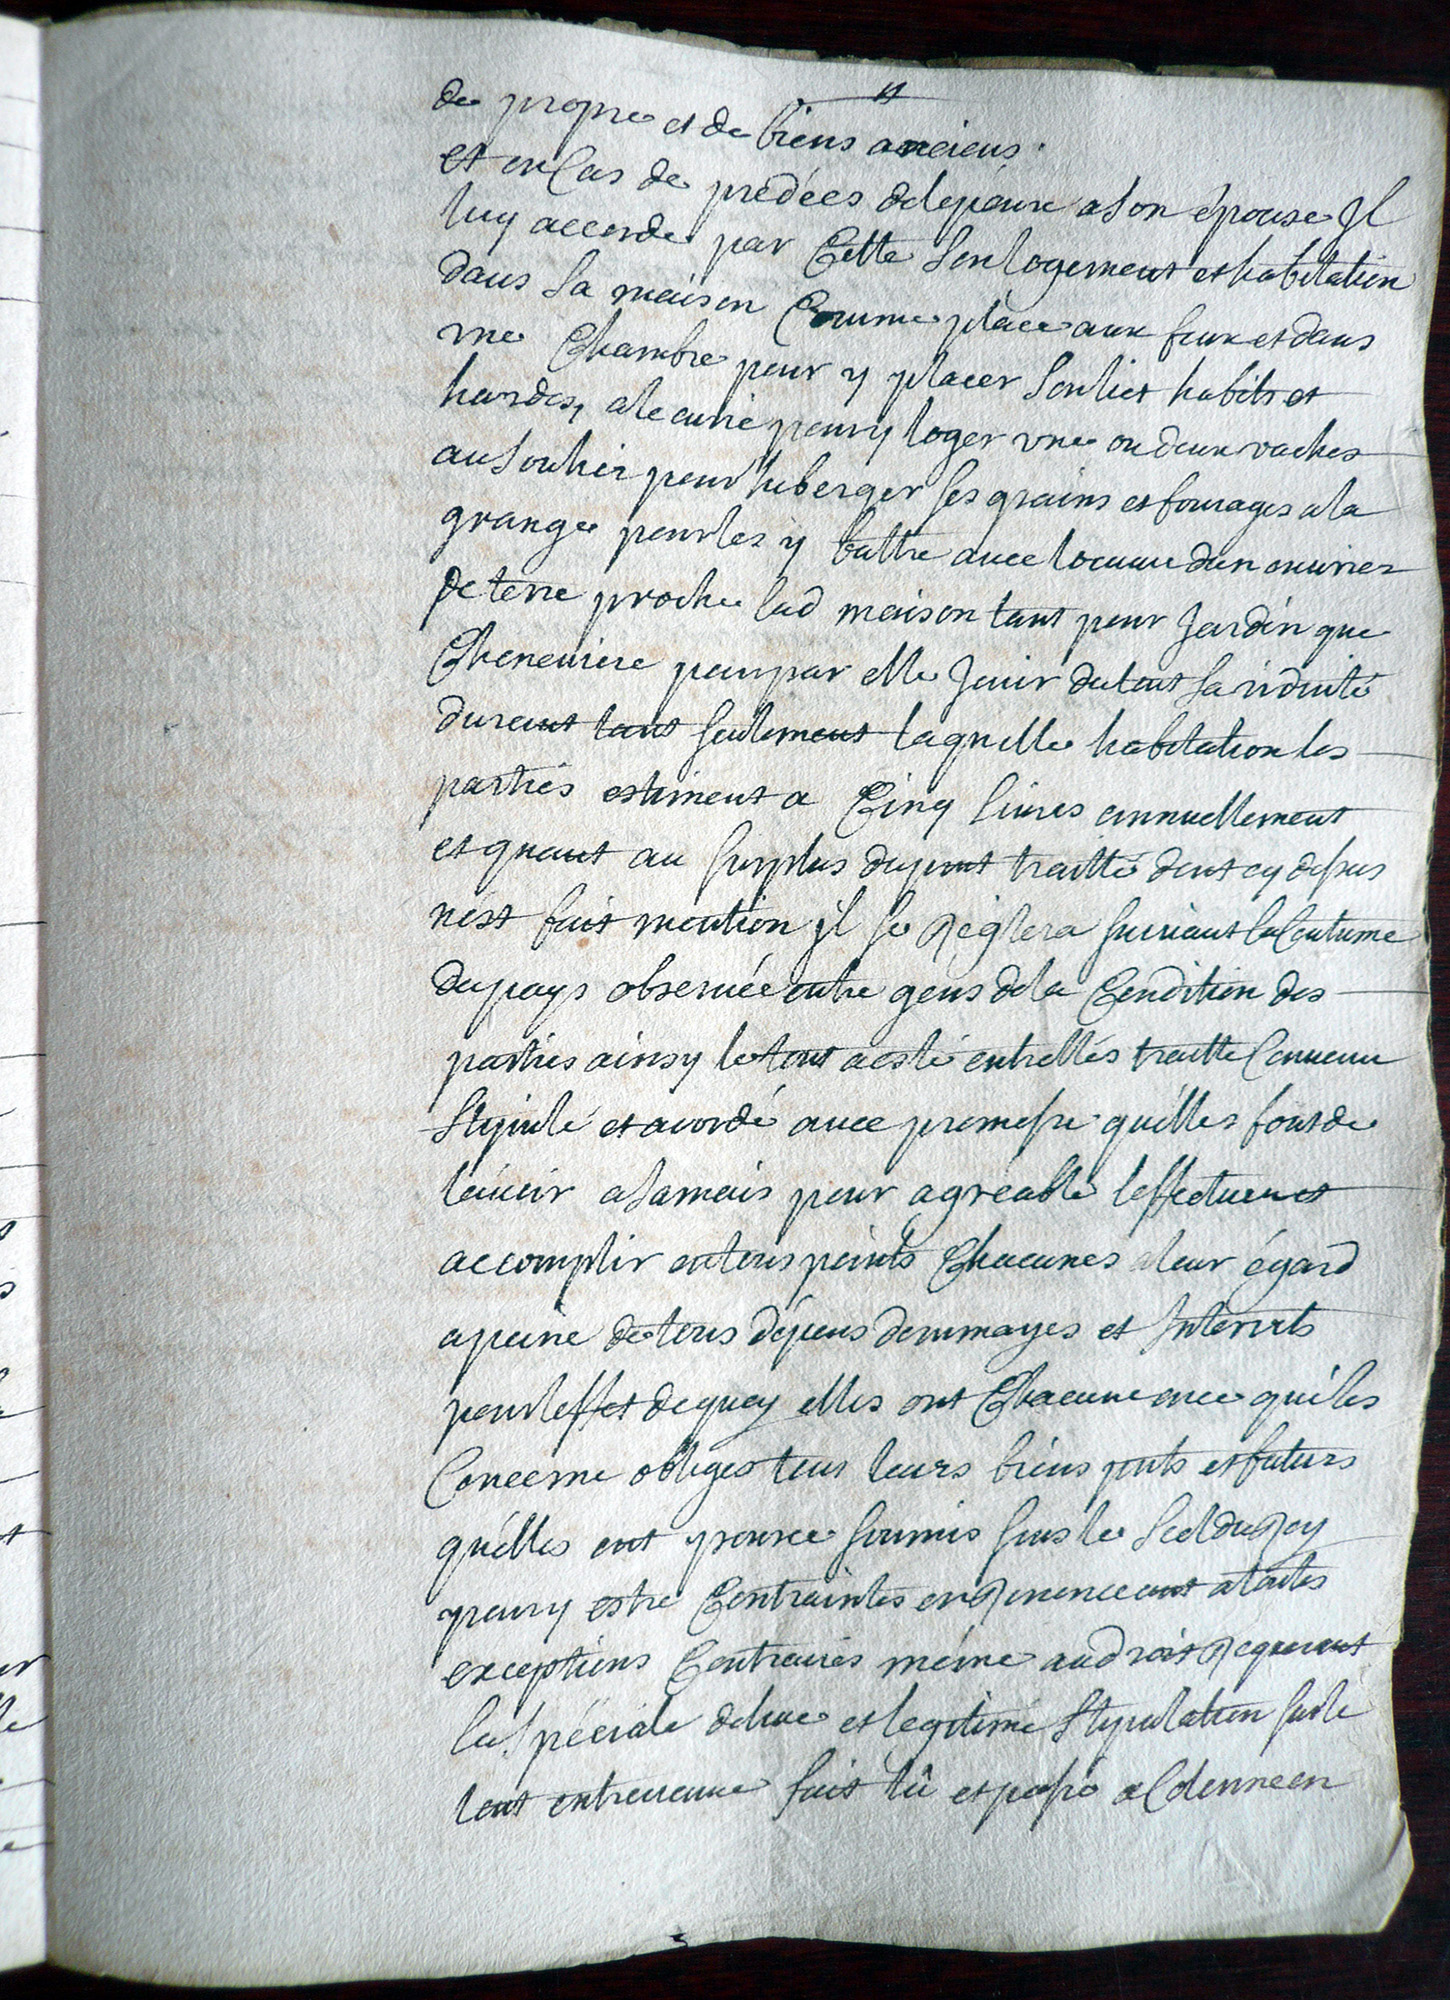 de propre et de biens anciens.
et en Cas de prédées delepoux a son épouse Jl
luy accorde par Cette son logement et habitation
dans sa maison Comme place aux feux et dans
vne Chambre pour y placer son lict habits et
hardes, a lecurie pour y loger vne ou deux vaches
au soulier pour heberger ses grains et fourages a la
grange pour les y battre auec locuuu dun ouurier
de terre proche lad maison tant pour Jardin que
Cheneuiere pour par elle Jouir du tout sa viduité
durant tant seulement laquelle habitation les
parties estiment a Cinq liures annuellement
et quant au surplus du pnt traitté dont cy dessus
nest fait mention jl se Reglera suiuant la Coutume
du pays obseruée entre gens de la Condition des
parties ainsy le tout a esté entrelles traitté Conuenu
Stipulé et acordé auec promesse quélles font de
lauoir a Jamais pour agréable leffectuer et
accomplir en tous points Chacunes a leur égard
a peine de tous dépens dommages et Interrets
pour leffet de quoy elles ont Chacune en ce qui les
Concerne obligés tous leurs biens pnts et futurs
quélles ont pour ce soumis sous le Scel du Roy
pour y estre Contraintes en Renonceant a toutes
exceptions Contraires méme au droit Requerant
la spéciale deüe et legitime Stipulation sur le
tout entreuenue fait lû et passé a Colonne en